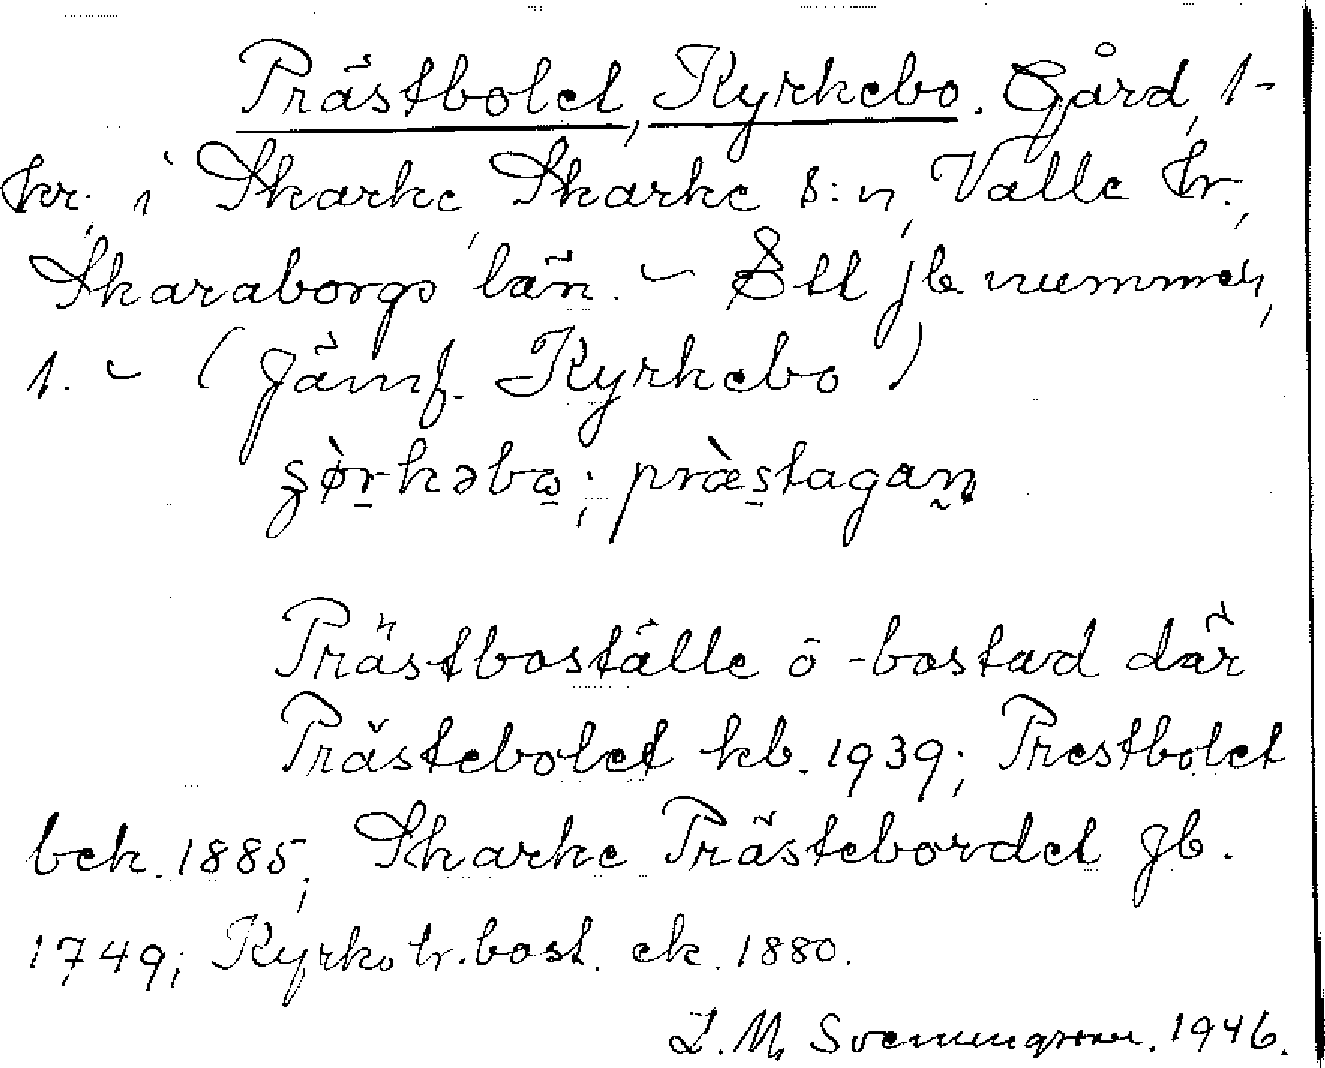 Prästbolet, Kyrkebo. Gård, 1-
kr. i Skarke, Skarke s:n, Valle hr.,
Skaraborgs län. - Ett jb nummer,
1. - (Jämf. Kyrkebo)
præ̀stagan
Prästboställe o -bostad där
Prästebolet kb. 1939; Prestbolet
bek. 1885; Skarke Prästebordet jb.
1749; Kyrkohr.bost. ek. 1880.
L. M. Svenungsson. 1946.